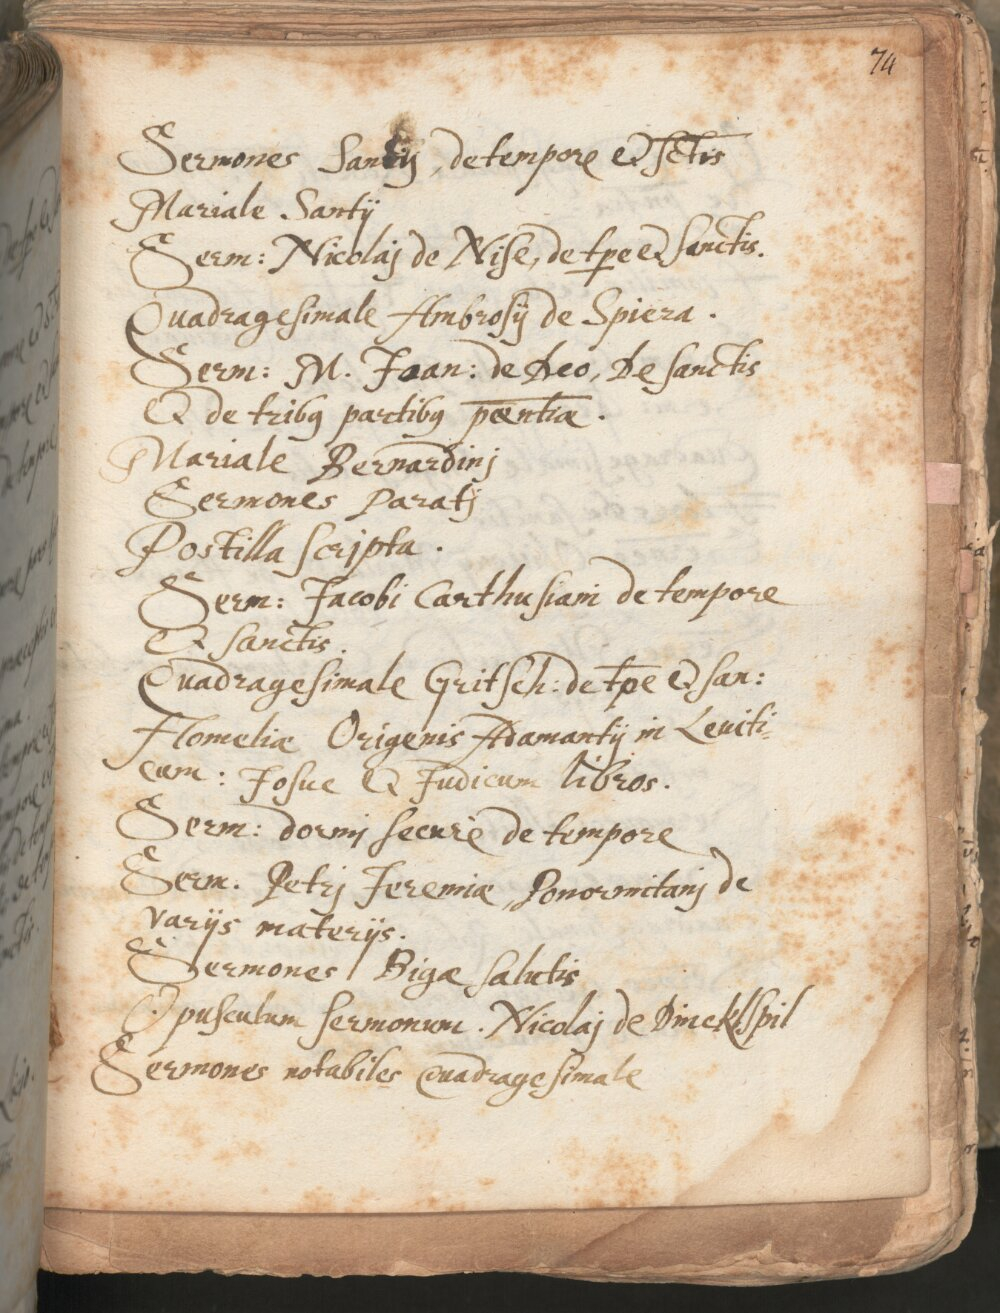 74
Sermones Santij, de tempore et Sctis
Mariale Santij
Serm: Nicolaj de Nise, de tpe et Sanctis.
Quadragesimale Ambrosij de Spiera.
Serm: M. Joan: de Deo, De sanctis
Et de tribq partibq pœntiæ.
Mariale Bernardinj
Sermones Paratj
Postilla scripta.
Serm: Jacobi Carthusiani de tempore
Et sanctis.
Quadragesimale Gritsch: de tpe et san:
Homeliæ Origenis Adamantij in Leuiti-
cum: Josue Et Judicum libros.
Serm: dormj secure de tempore
Serm. Petrj Jeremiæ Ponormitanj de
varijs materijs.
Sermones Bigæ salutis
Opusculum sermonum. Nicolaj de Dincklspil
Sermones notabiles Quadragesimale